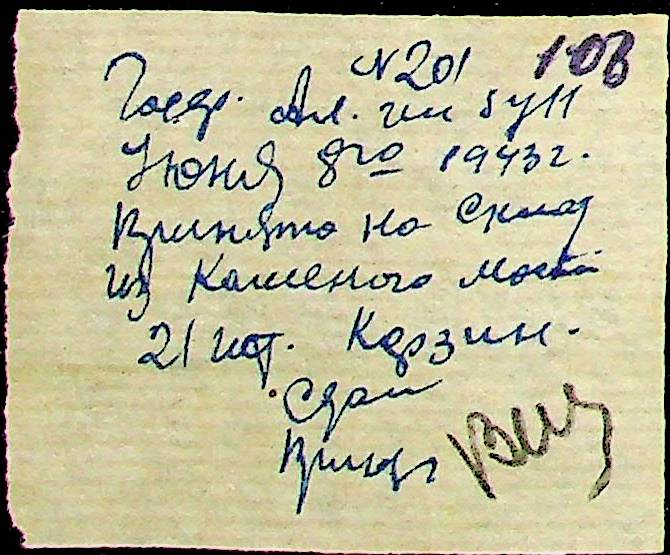 № 201 108
Госуд. Ал.
Июня 8го 1943 г.
Принято на Склад
из Каменого моста
21 шт. Корзин.
Сдал
Принял